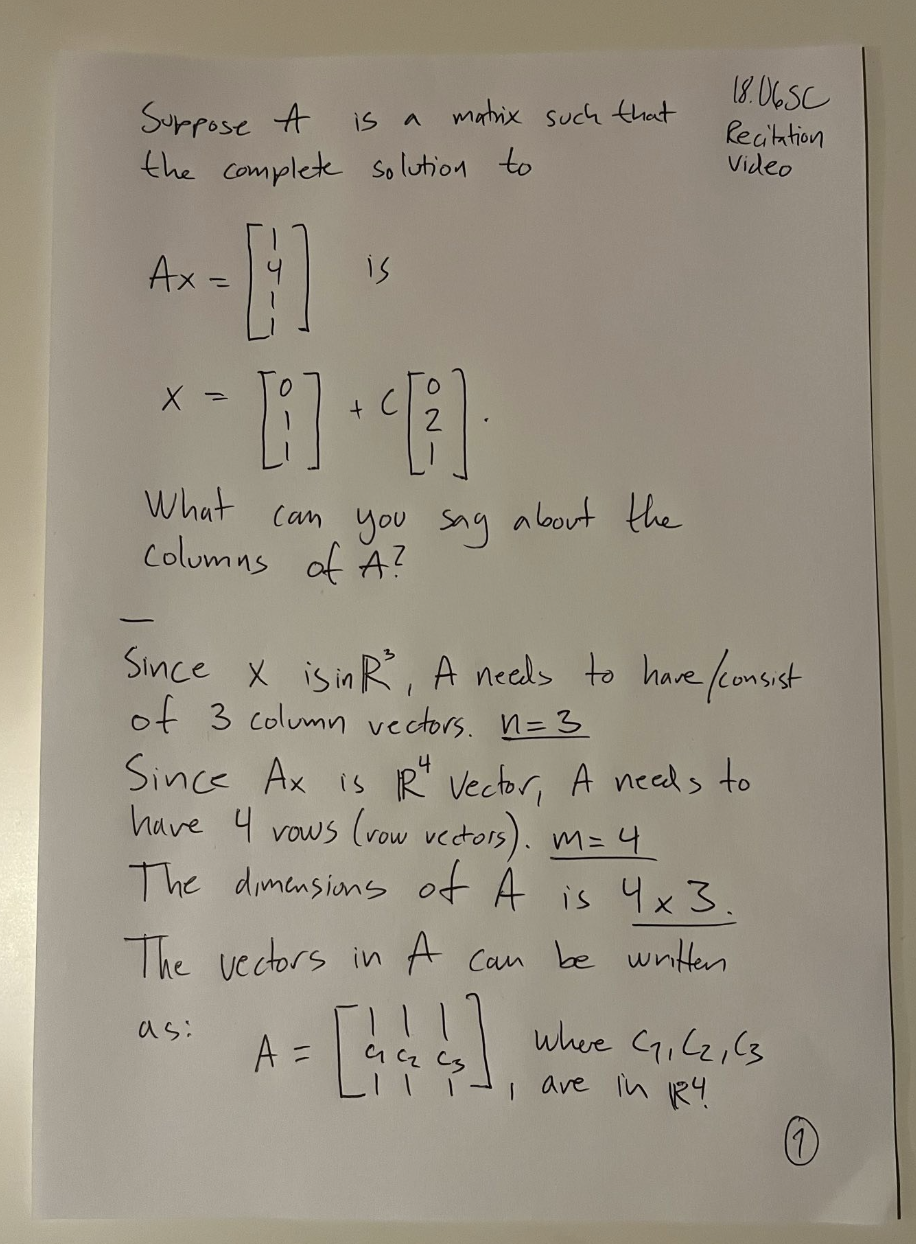 Suppose A is a matrix such that
the complete solution to
18.06SC
Recitation
Video
Ax = [1 4 1 1] is
x = [0 1 1] + c[0 2 1].
What can you say about the
columns of A?
—
Since x is in ℝ³, A needs to have/consist
of 3 column vectors. n=3
Since Ax is ℝ⁴ vector, A needs to
have 4 rows (row vectors). m=4
The dimensions of A is 4x3.
The vectors in A can be written
as: A = [| | | c₁ c₂ c₃ | | |], where c₁, c₂, c₃
are in ℝ⁴.
1